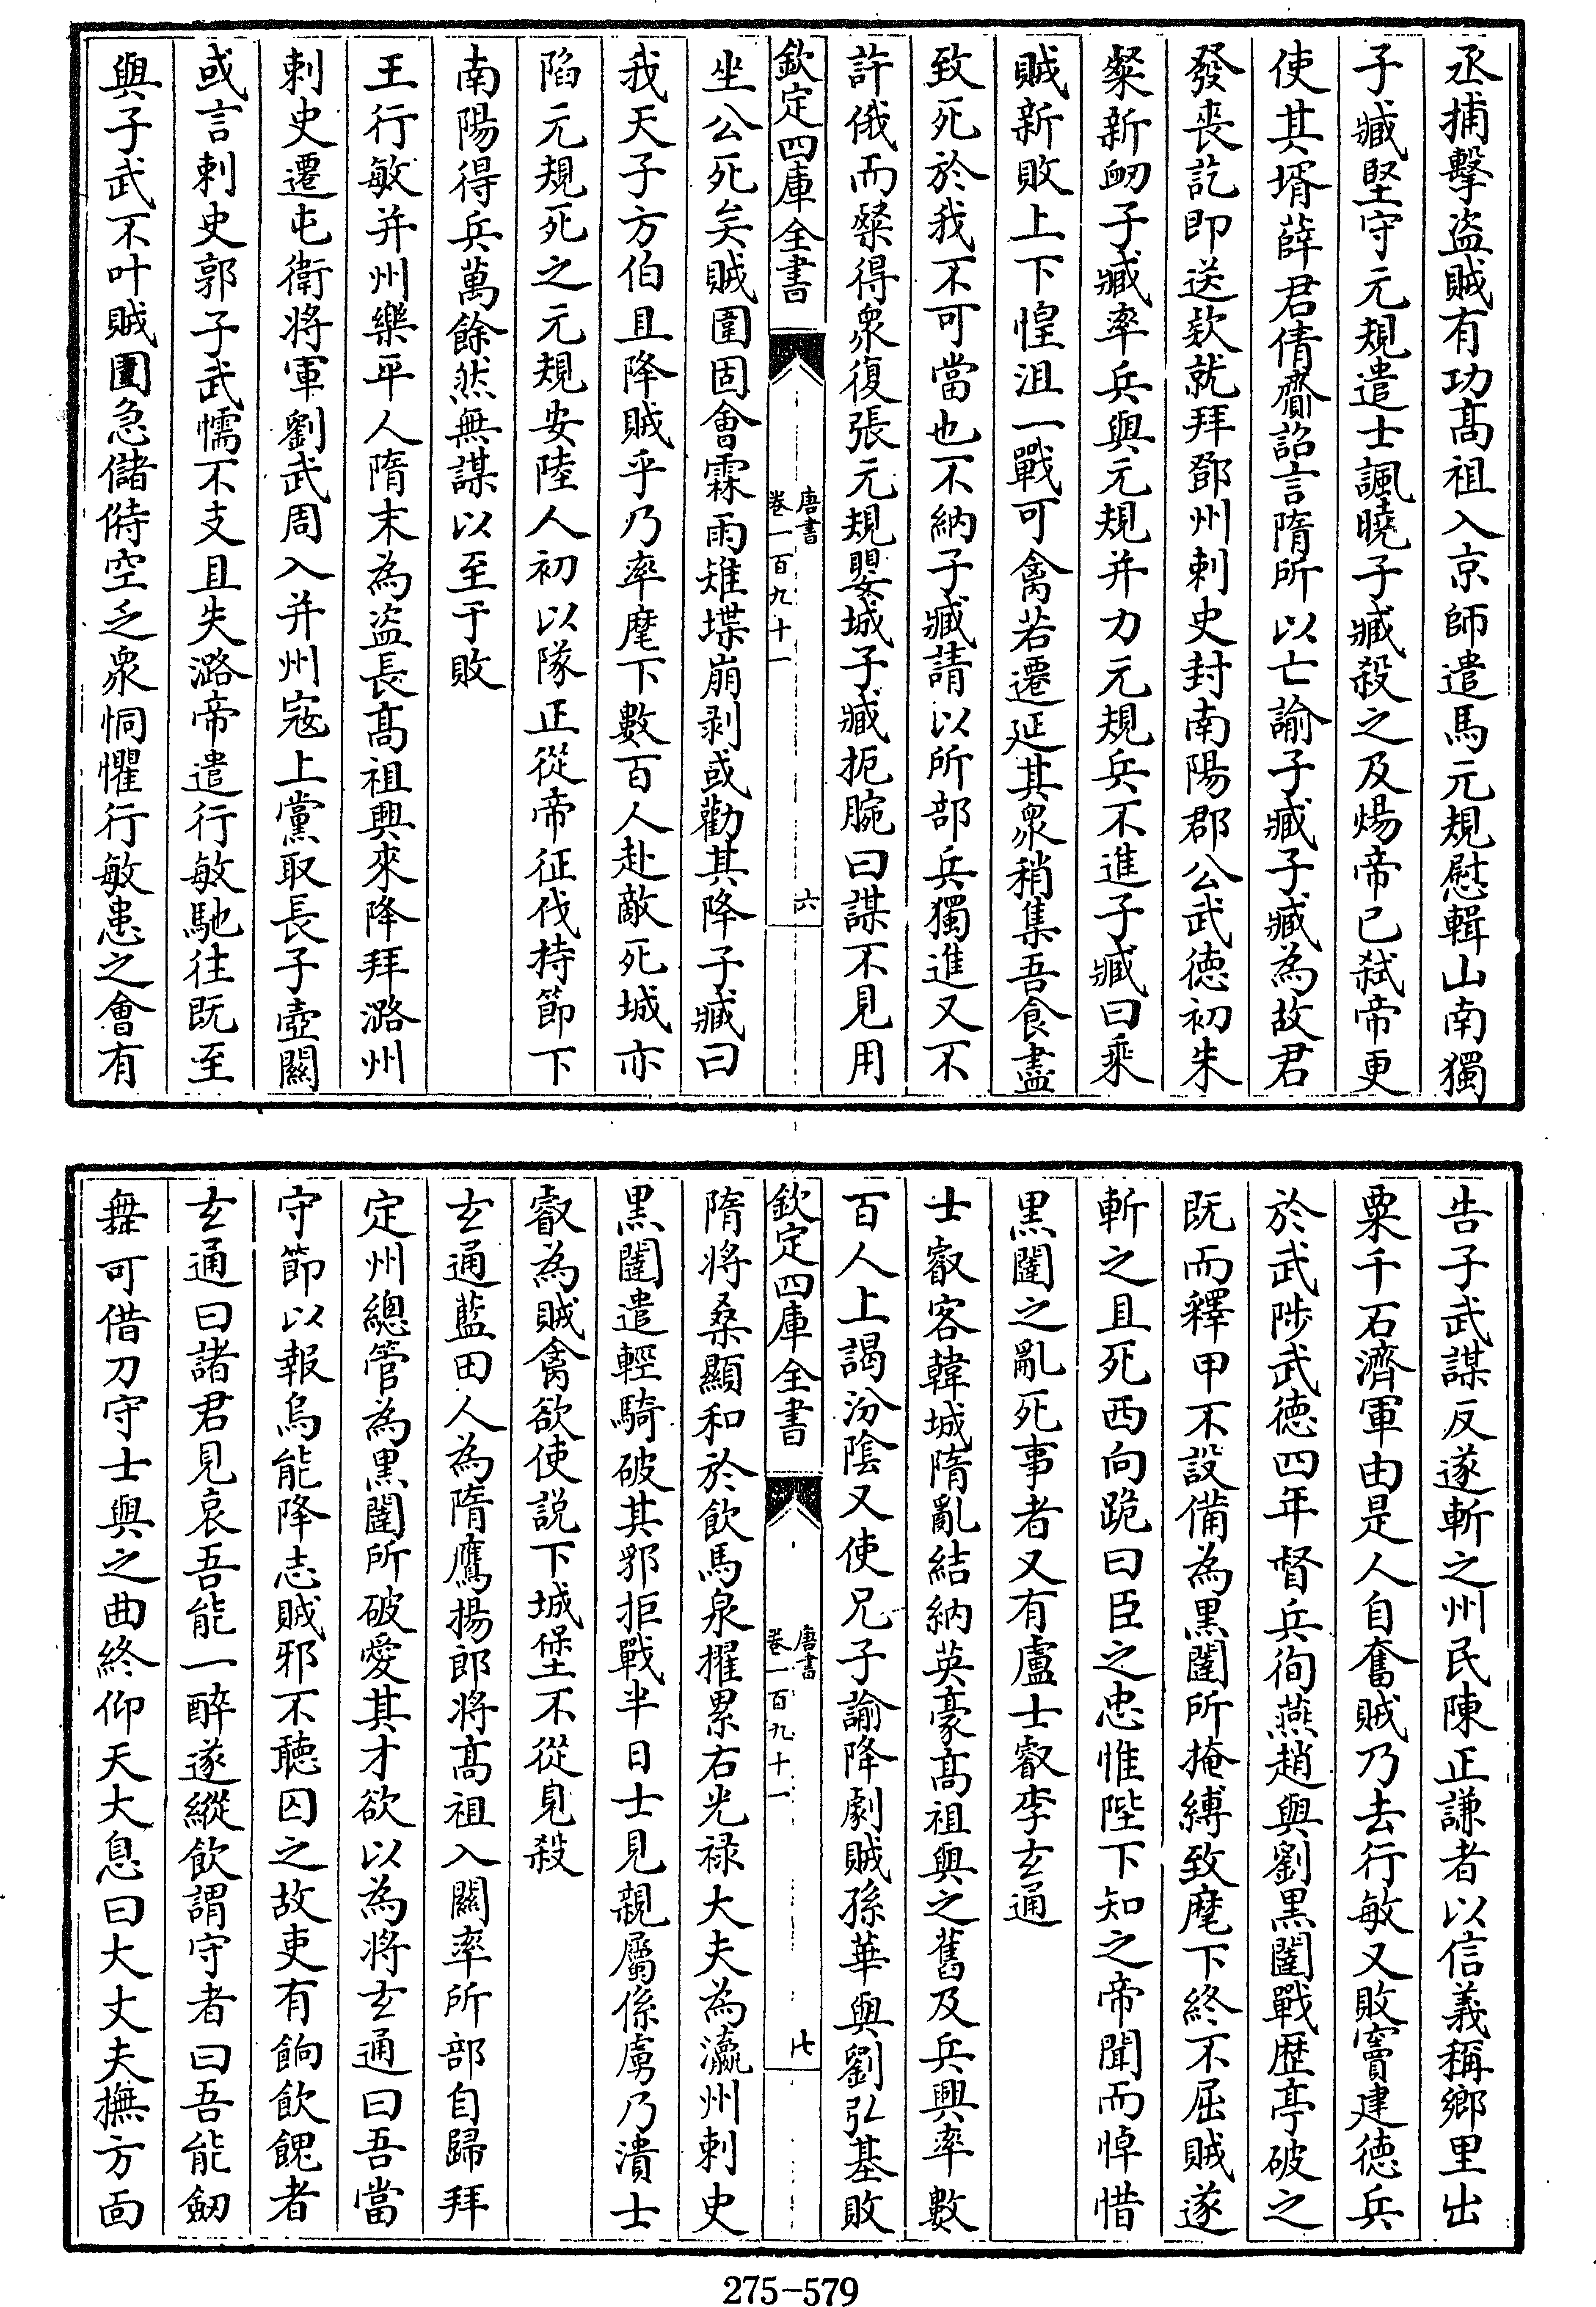 丞捕擊盜賊有功髙祖入京師遣馬元規慰輯山南獨
子臧堅守元規遣士諷曉子臧殺之及煬帝已弑帝更
使其壻薛君倩齎詔言隋所以亡諭子臧子臧為故君
發喪訖即送欵就拜鄧州刺史封南陽郡公武徳初朱
粲新衂子臧率兵與元規并力元規兵不進子臧曰乘
賊新敗上下惶沮一戰可禽若遷延其衆稍集吾食盡
致死於我不可當也不納子臧請以所部兵獨進又不
許俄而粲得衆復張元規嬰城子臧扼腕曰謀不見用
欽定四庫全書
唐書
卷一百九十一
六
坐公死矣賊圍固會霖雨雉堞崩剥或勸其降子臧曰
我天子方伯且降賊乎乃率麾下數百人赴敵死城亦
陷元規死之元規安陸人初以隊正從帝征伐持節下
南陽得兵萬餘然無謀以至于敗
王行敏并州樂平人隋末為盗長髙祖興來降拜潞州
刺史遷屯衛將軍劉武周入并州寇上黨取長子壺關
或言刺史郭子武懦不支且失潞帝遣行敏馳往既至
與子武不叶賊圍急儲偫空乏衆恫懼行敏患之會有
告子武謀反遂斬之州民陳正謙者以信義稱鄉里出
粟千石濟軍由是人自奮賊乃去行敏又敗竇建德兵
於武陟武徳四年督兵徇燕趙與劉黒闥戰歴亭破之
既而釋甲不設備為黒闥所掩縛致麾下終不屈賊遂
斬之且死西向跪曰臣之忠惟陛下知之帝聞而悼惜
黒闥之亂死事者又有盧士叡李𤣥通
士叡客韓城隋亂結納英豪髙祖與之舊及兵興率數
百人上謁汾隂又使兄子諭降劇賊孫華與劉弘基敗
欽定四庫全書
唐書
卷一百九十一
七
隋將桑顯和於飲馬泉擢累右光禄大夫為瀛州刺史
黒闥遣輕騎破其郛拒戰半日士見親屬係虜乃潰士
叡為賊禽欲使説下城堡不從見殺
𤣥通藍田人為隋鷹揚郎將髙祖入關率所部自歸拜
定州總管為黒闥所破愛其才欲以為將𤣥通曰吾當
守節以報烏能降志賊邪不聽囚之故吏有餉飲餽者
𤣥通曰諸君見哀吾能一醉遂縱飲謂守者曰吾能劒
舞可借刀守士與之曲終仰天大息曰大丈夫撫方面
275-579